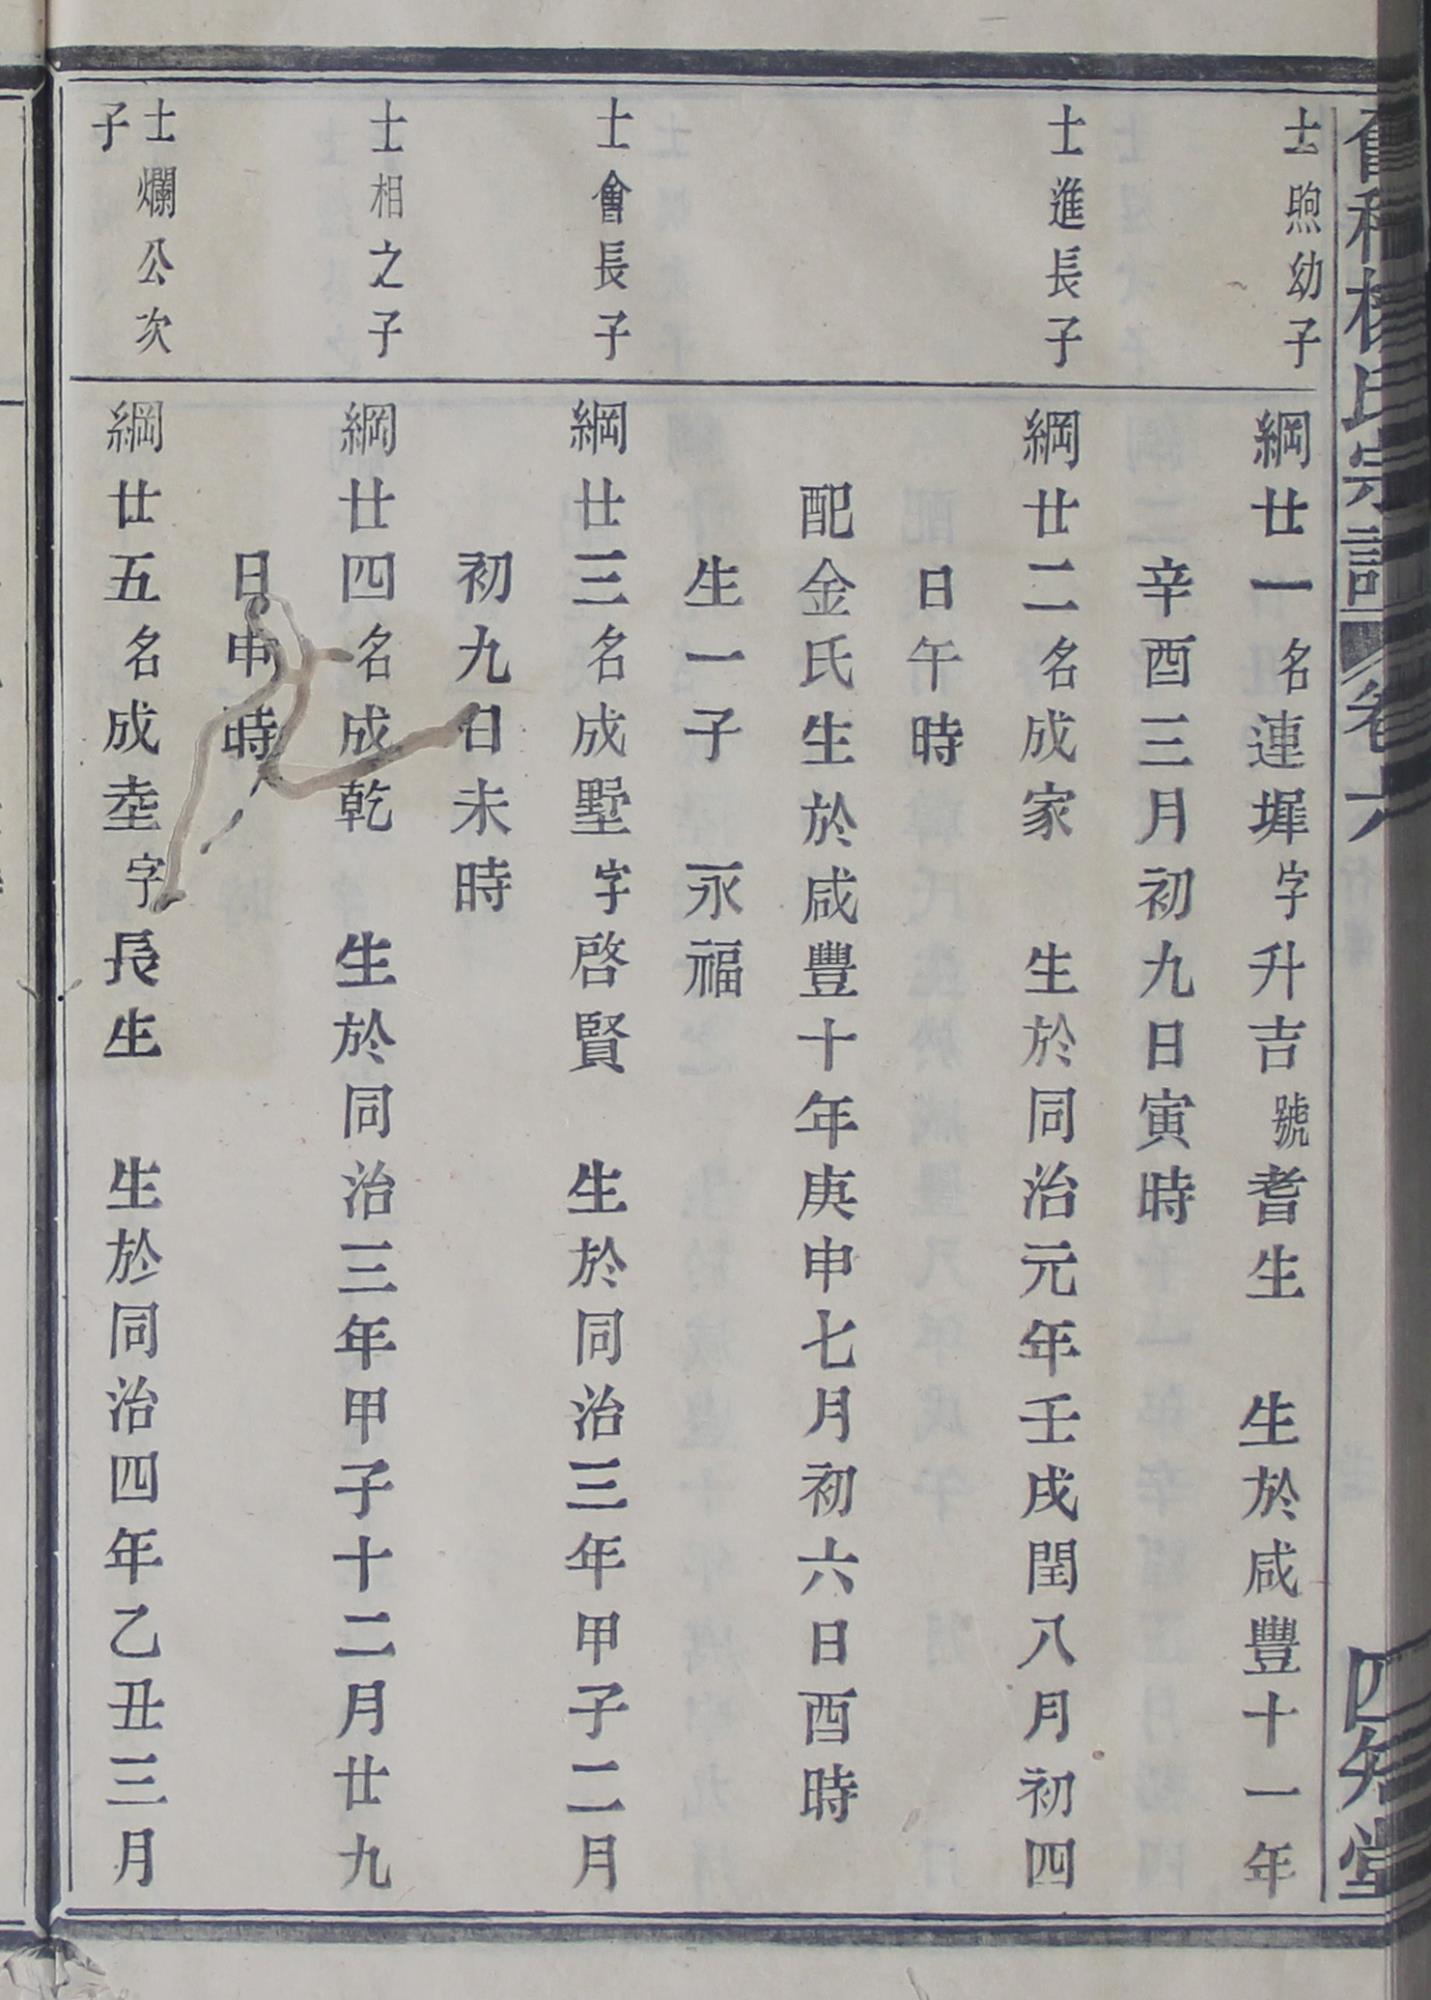 氏宗譜 卷六 四知堂
士煦幼子
綱廿一名連墀字升吉號耆生 生於咸豐十一年
辛酉三月初九日寅時
士進長子
綱廿二名成家 生於同治元年壬戌閏八月初四
日午時
配金氏生於咸豐十年庚申七月初六日酉時
生一子 永福
士會長子
綱廿三名成墅字啓賢 生於同治三年甲子二月
初九日未時
士相之子
綱廿四名成乾 生於同治三年甲子十二月廿九
日申時
士爛公次
子
綱廿五名成坴字長生 生於同治四年乙丑三月